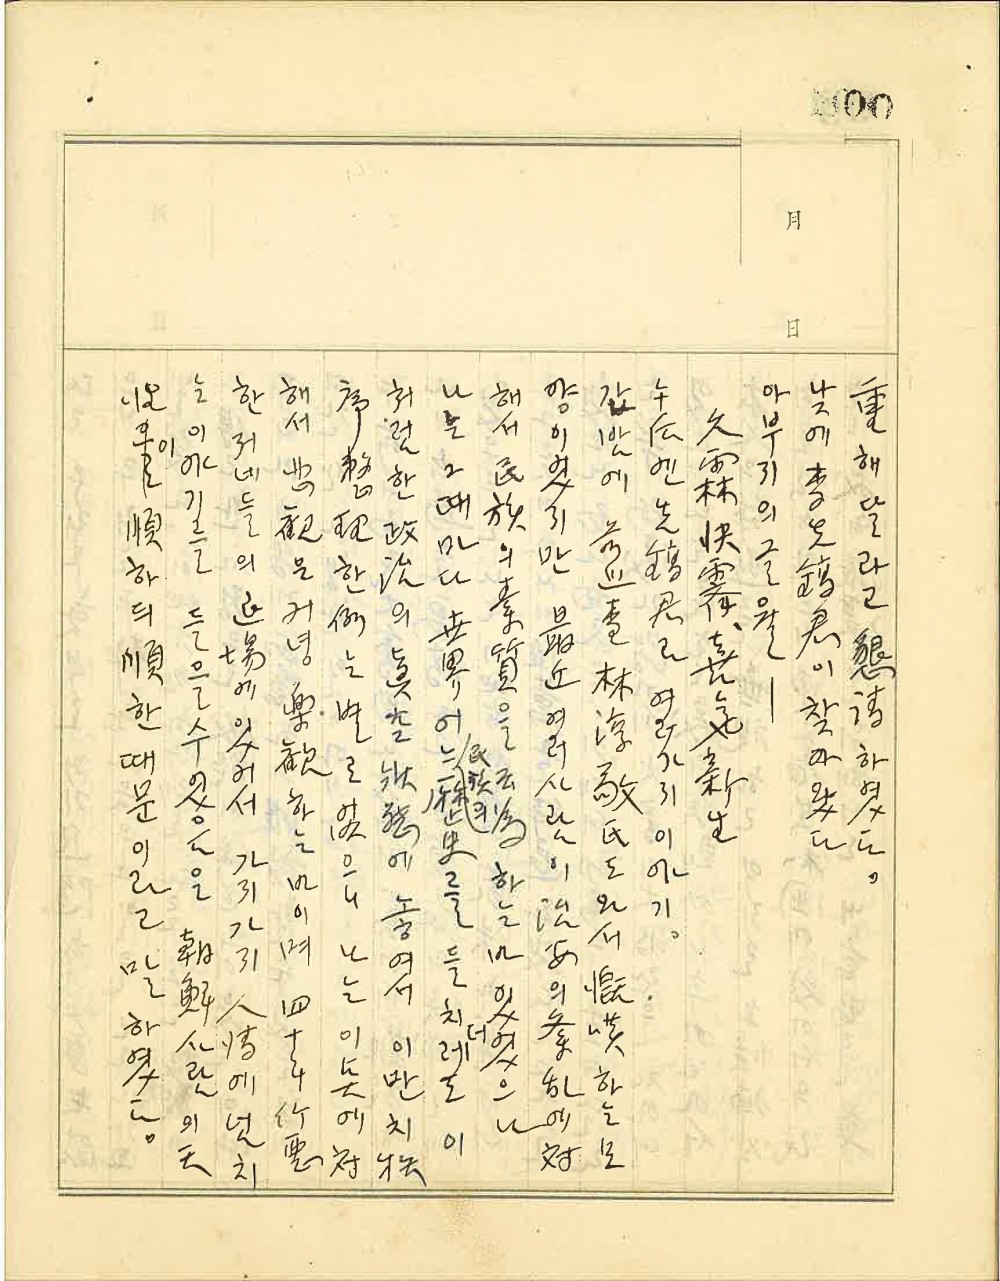 00
月
日
重해달라고 懇請하였다。
낮에 李先鎬君이 찾아왔다
아부지의 글월ㅣ
久霖快霽、喜気新生
午后엔 先鎬君과 여러가지 이야기。
갑밤에 林淳敬氏도 와서 慨嘆하는모
양이였지만 最近 여러사람이 治安의 紊乱에対
해서 民族의素質을 云爲하는바 있었으나
나는 그때마다 世界 어느 民族의 歷史를 들치더레도 이
처럼한 政治의 眞空狀態에 놓여서 이만치 秩
序整理한 例는 별로 없으니 나는 이곳에 対
해서 悲観은커녕 樂観하는바이며 四十年 行悪
한 저네들의 立場에 있어서 가지가지 人情에 넘치
는 이야기를 들을수있음은 朝鮮사람의 天
이 順하되 順한 때문이라고 말하였다。